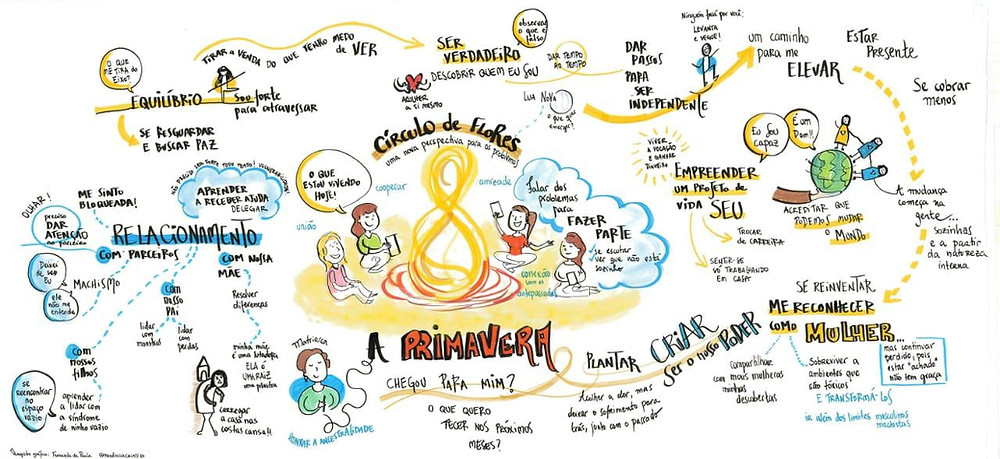 O QUE
ME TIRA DO
EIXO?
EQUILÍBRIO
SOU forte
para atravessar
SE RESGUARDAR
E BUSCAR PAZ
TIRAR A VENDA DO QUE TENHO MEDO
de VER
SER
VERDADEIRO
observar
o que é
falso
DESCOBRIR QUEM EU SOU
ACOLHER
A SI MESMO
DAR TEMPO
AO TEMPO
LUA NOVA
o que quer
emergir?
DAR
PASSOS
PARA
SER
INDEPENDENTE
Ninguém fará por você:
LEVANTA
e SEGUE!
um caminho
para me
ELEVAR
ESTAR
PRESENTE
Se cobrar
menos
A mudança
começa na
gente...
sozinhas
e a partir
da natureza
interna
VIVER
A VOCAÇÃO
E GANHAR
DINHEIRO
EMPREENDER
UM PROJETO de
VIDA SEU
TROCAR
de CARREIRA
SENTIR-SE
SÓ TRABALHANDO
EM CASA
Eu Sou
capaz
É um
Dom!!
ACREDITAR QUE
PODEMOS MUDAR
O MUNDO
CÍRCULO de FLORES
uma nova perspectiva para os problemas
O QUE
ESTOU VIVENDO
HOJE!
cooperar
amizade
união
conexão
com os
antepassados
falar dos
problemas
para
FAZER
PARTE
se escutar
ver que não está
sozinha
APRENDER
A RECEBER AJUDA
DELEGAR
OLHAR!
ME SINTO
BLOQUEADA!
preciso
DAR
ATENÇÃO
ao parceiro
RELACIONAMENTO
COM PARCEIROS
Deixei
de ser
eu
MACHISMO
ele
não me
entende
COM
NOSSO
PAI
lidar
com
monstros
lidar
com
perdas
COM NOSSA
MÃE
Resolver
diferenças
minha mãe
é uma lutadora
ELA É
UMA RAIZ
uma planta
COM
nossos
filhos
se
reencontrar
no
espaço
vazio
aprender
a lidar com
a síndrome
de ninho vazio
carregar
a casa nas
costas cansa!!
Matriarca
HONRAR A ANCESTRALIDADE
A PRIMAVERA
CHEGOU PARA MIM?
O QUE QUERO
TECER NOS PRÓXIMOS
MESES?
PLANTAR
CRIAR
Ser o nosso PODER
Acolher a dor, mas
deixar o sofrimento para
trás, junto com o passado
SE REINVENTAR
ME RECONHECER
COMO MULHER...
compartilhar
com mais mulheres
minhas
descobertas
Sobreviver a
ambientes que
são tóxicos
E TRANSFORMÁ-LOS
ir além dos limites masculinos
machistas
mas continuar
perdido, pois
estar "achado"
não tem graça